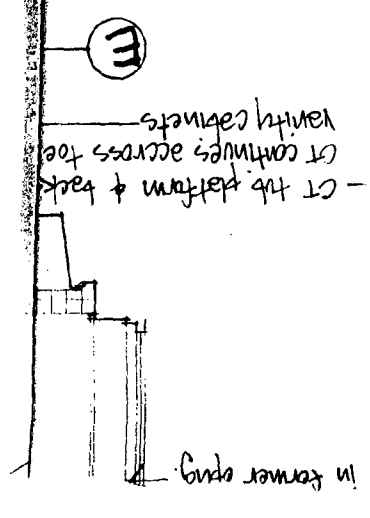 in former opng.
- CT tub platform & back
CT continues accross toe
vanity cabinets
E